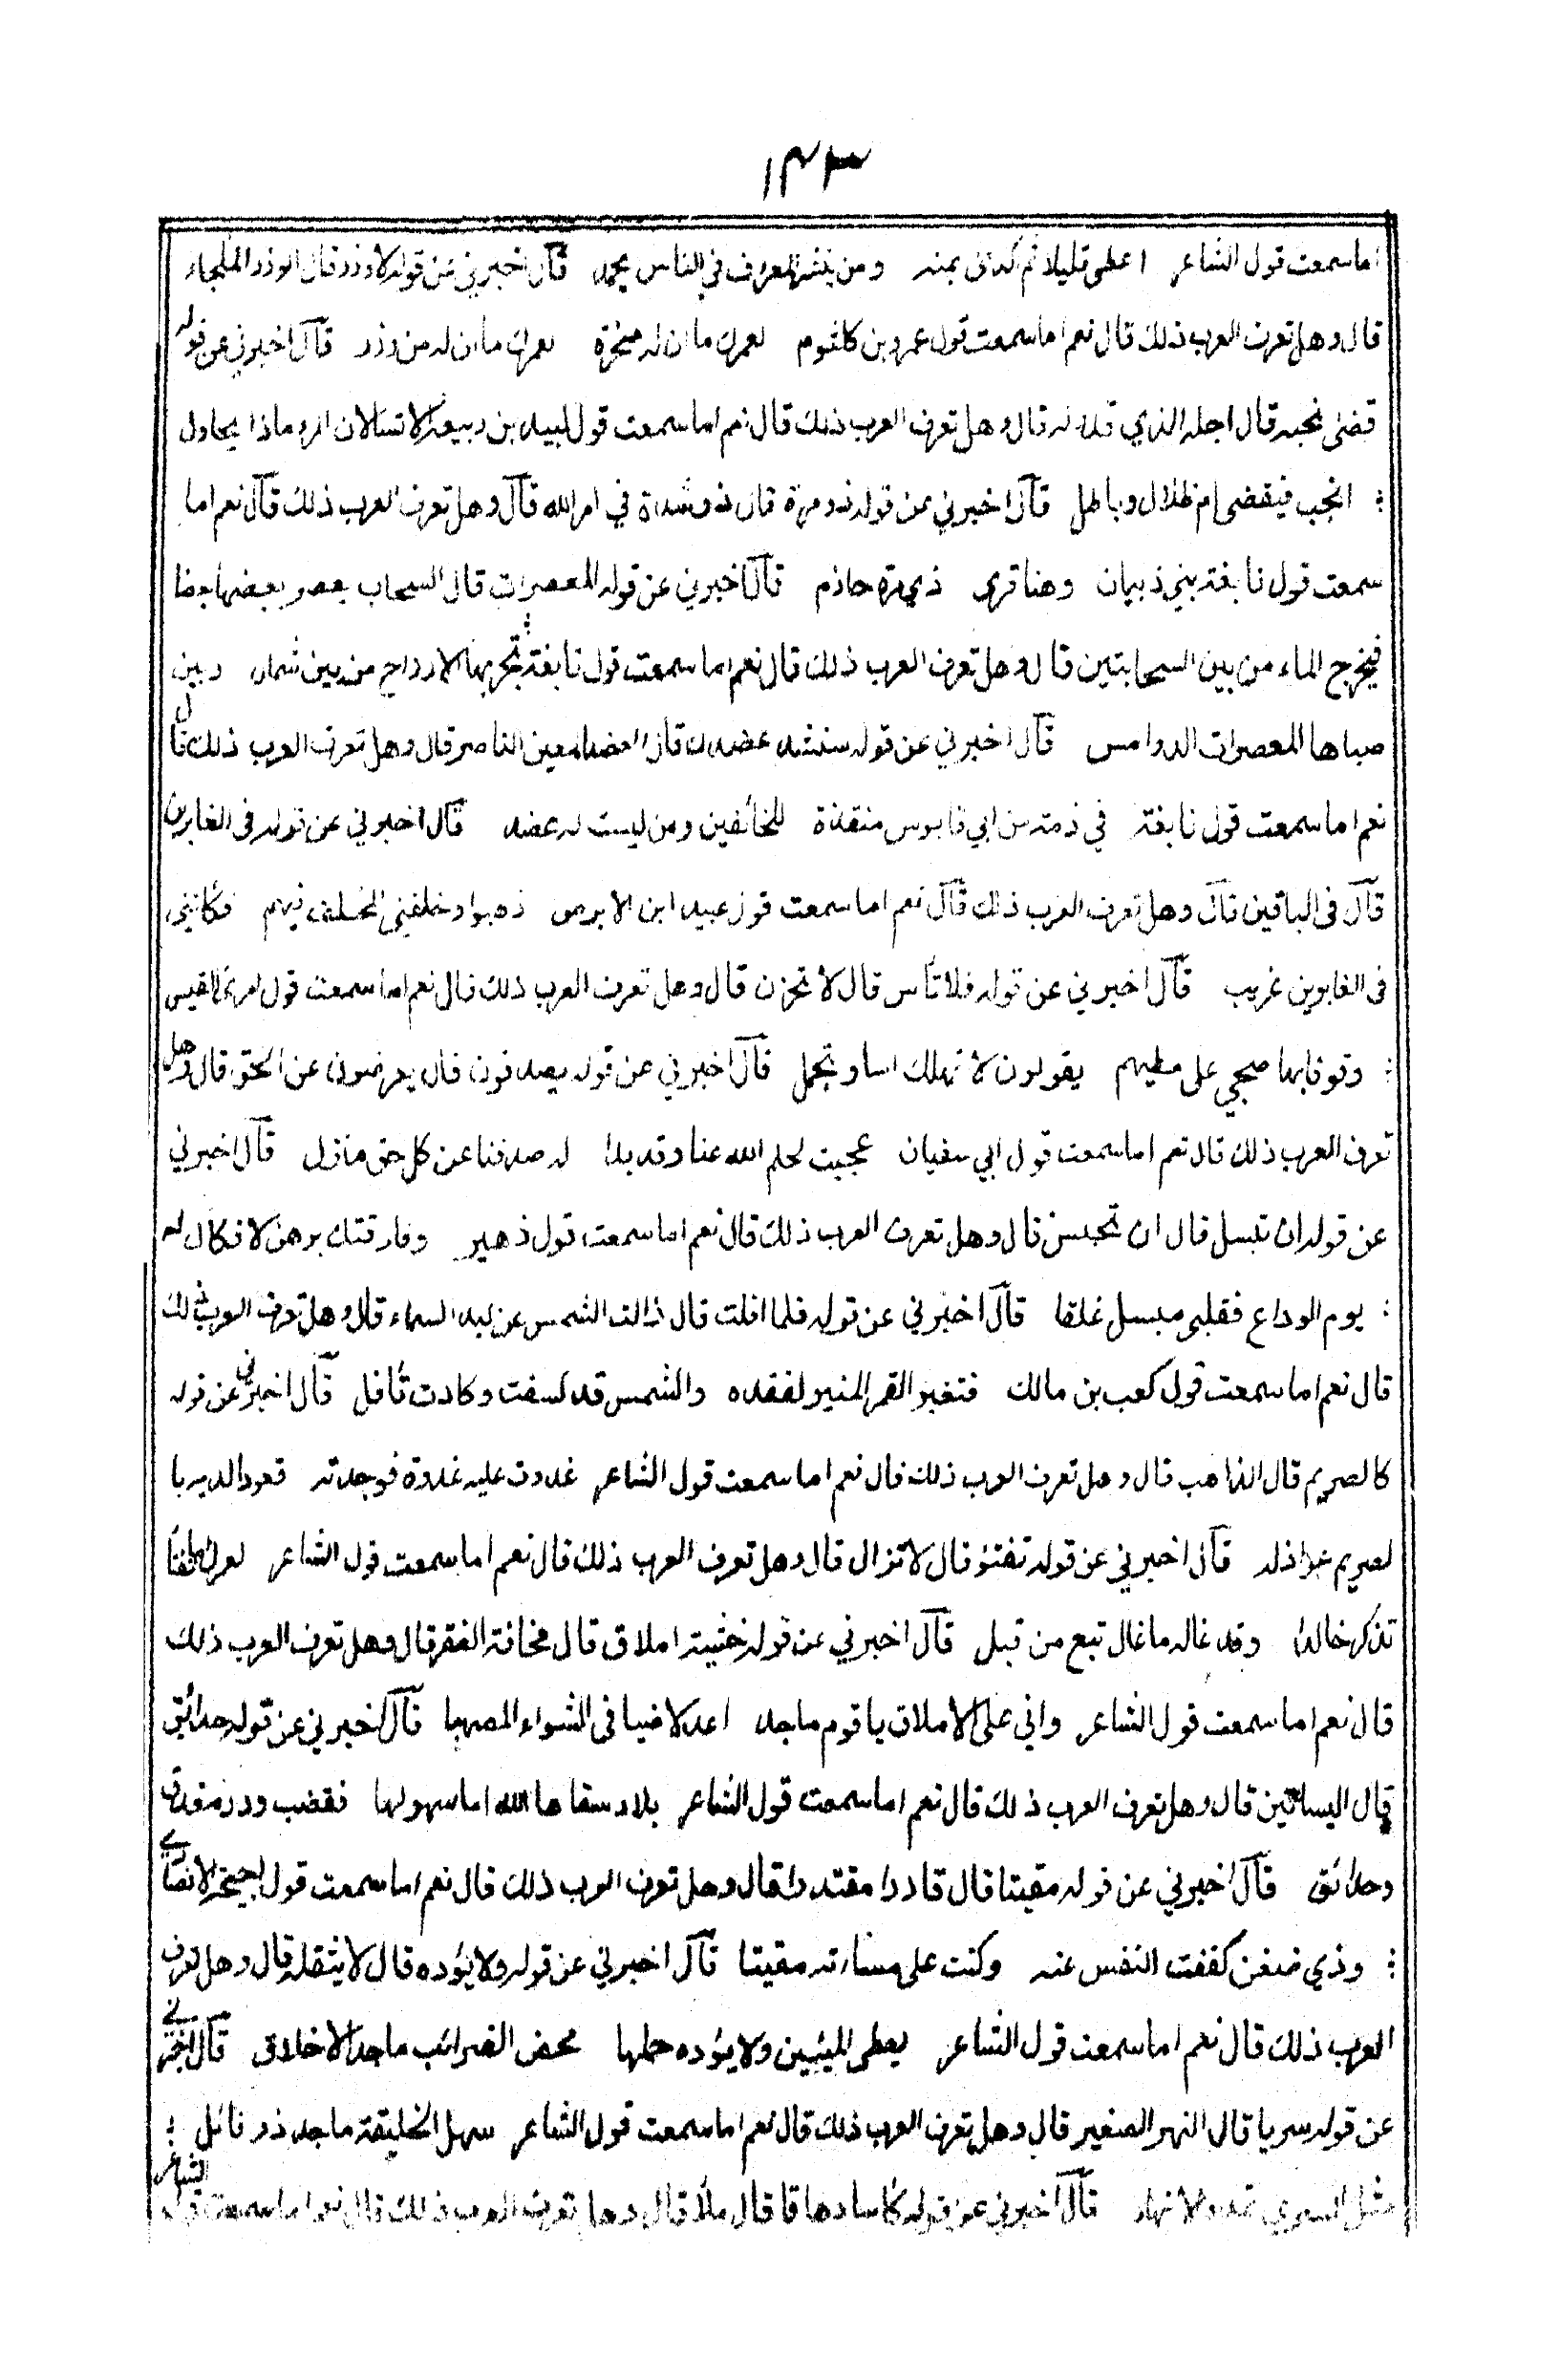 ١٤٣
اما سمعت قول الشاعر اعطى قليلا ثم اكدى بمنه ومن ينشر المعروف في الناس يحمد قال اخبرني عن قوله لا وزر قال الوزر الملجاء
قال وهل تعرف العرب ذلك قال نعم اما سمعت قول عمرو بن كلثوم لعمرك ما ان له صخرة لعمرك ما ان له من وزر قال اخبرني عن قوله
قضى نحبه قال اجله الذي قدر له قال وهل تعرف العرب ذلك قال نعم اما سمعت قول لبيد بن ربيعة الا تسالان المرء ماذا يحاول
انحب فيقضى ام ظلال وباطل قال اخبرني عن قوله ذو مرة قال ذو شدة في امر الله قال وهل تعرف العرب ذلك قال نعم اما
سمعت قول نابغة بني ذبيان وهنا قرى ذي مرة حازم قال اخبرني عن قوله المعصرات قال السحاب يعصر بعضها بعضا
فيخرج الماء من بين السحابتين قال وهل تعرف العرب ذلك قال نعم اما سمعت قول نابغة تجر بها الارواح من بين شمال وبين
صباها المعصرات الدوامس قال اخبرني عن قوله سنشد عضدك قال العضد المعين الناصر قال وهل تعرف العرب ذلك قال
نعم اما سمعت قول نابغة في ذمة من ابي قابوس منقذة للخائفين ومن ليست له عضد قال اخبرني عن قوله في الغابرين
قال في الباقين قال وهل تعرف العرب ذلك قال نعم اما سمعت قول عبيد ابن الابرص ذهبوا وخلفني المخلف فيهم فكانني
في الغابرين غريب قال اخبرني عن قوله فلا تأس قال لا تحزن قال وهل تعرف العرب ذلك قال نعم اما سمعت قول امرئ القيس
وقوفا بها صحبي على مطيهم يقولون لا تهلك اسا وتجمل قال اخبرني عن قوله يصدفون قال يعرضون عن الحق قال وهل
تعرف العرب ذلك قال نعم اما سمعت قول ابي سفيان عجبت لحلم الله عنا وقد بدا له صدفنا عن كل حق منزل قال اخبرني
عن قوله ان تبسل قال ان تحبس قال وهل تعرف العرب ذلك قال نعم اما سمعت قول زهير وفارقتك برهن لا فكاك له
يوم الوداع فقلبي مبسل غلقا قال اخبرني عن قوله فلما افلت قال زالت الشمس عن كبد السماء قال وهل تعرف العرب ذلك
قال نعم اما سمعت قول كعب بن مالك فتغير القمر المنير لفقده والشمس قد كسفت وكادت تأفل قال اخبرني عن قوله
كالصريم قال الذاهب قال وهل تعرف العرب ذلك قال نعم اما سمعت قول الشاعر غدوت عليه غدوة فوجدته قعودا لديه با
لصريم عواذله قال اخبرني عن قوله تفتؤ قال لا تزال قال وهل تعرف العرب ذلك قال نعم اما سمعت قول الشاعر لعمرك ما تفتأ
تذكر خالدا وقد غاله ما غال تبع من قبل قال اخبرني عن قوله خشية املاق قال مخافة الفقر قال وهل تعرف العرب ذلك
قال نعم اما سمعت قول الشاعر واني على الاملاق يا قوم ماجد اعد لاضيافي الشواء المصهبا قال اخبرني عن قوله حدائق
قال البساتين قال وهل تعرف العرب ذلك قال نعم اما سمعت قول الشاعر بلاد سقاها الله اما سهولها فقضب ودر مغدق
وحدائق قال اخبرني عن قوله مقيتا قال قادرا مقتدرا قال وهل تعرف العرب ذلك قال نعم اما سمعت قول احيحة الانصاري
وذي ضغن كففت النفس عنه وكنت على مساءته مقيتا قال اخبرني عن قوله ولا يؤده قال لا يثقله قال وهل تعرف
العرب ذلك قال نعم اما سمعت قول الشاعر يعطى المئين ولا يؤده حملها محض الضرائب ماجد الاخلاق قال اخبرني
عن قوله سريا قال النهر الصغير قال وهل تعرف العرب ذلك قال نعم اما سمعت قول الشاعر سهل الخليقة ماجد ذو نائل
مثل السري تمده الانهار قال اخبرني عن قوله كاسا دهاقا قال ملأ قال وهل تعرف العرب ذلك قال نعم اما سمعت قول الشاعر